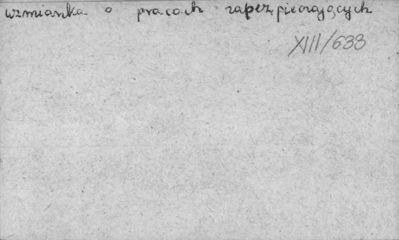 wzmianka o pracach zabezpieczających
XIII/633